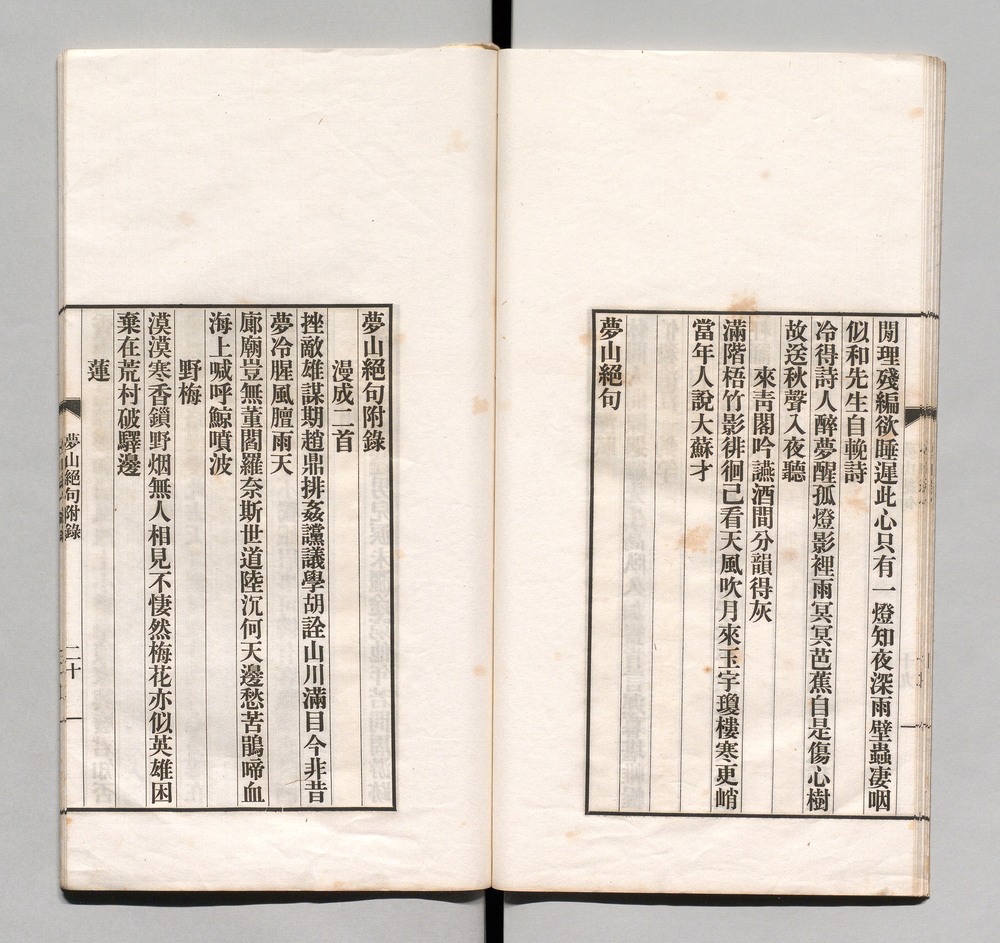 閒理殘編欲睡遲此心只有一燈知夜深雨壁蟲凄咽
似和先生自輓詩
冷得詩人醉夢醒孤燈影裡雨冥冥芭蕉自是傷心樹
故送秋聲入夜聽
來靑閣吟讌酒間分韻得灰
滿階梧竹影徘徊已看天風吹月來玉宇瓊樓寒更峭
當年人說大蘇才
夢山絕句
夢山絕句附錄
漫成二首
挫敵雄謀期趙鼎排姦讜議學胡詮山川滿目今非昔
夢冷腥風膻雨天
廊廟豈無董閻羅奈斯世道陸沉何天邊愁苦鵑啼血
海上喊呼鯨噴波
野梅
漠漠寒香鎖野烟無人相見不悽然梅花亦似英雄困
棄在荒村破驛邊
蓮
夢山絕句附錄
二十